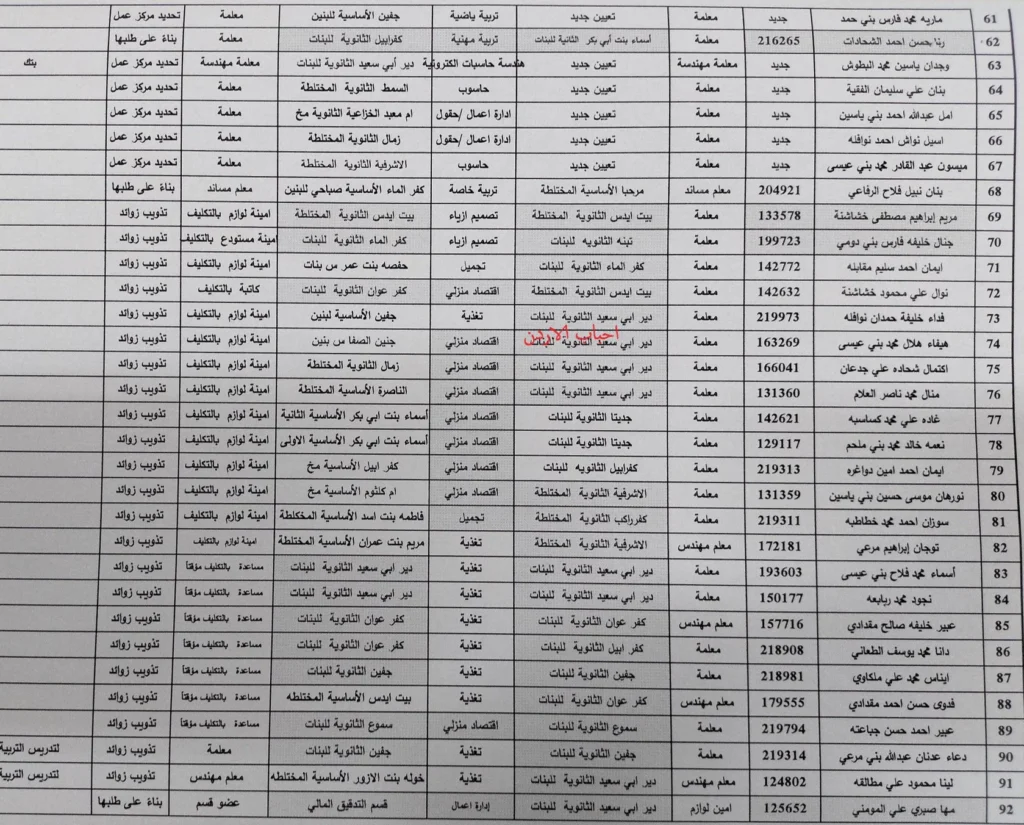 61 ماريه محمد فارس بني حمد جديد معلمة تعيين جديد تربية رياضية جفين الأساسية للبنين معلمة تحديد مركز عمل
62 رنا حسن احمد الشحادات 216265 معلمة أسماء بنت أبي بكر الثانية للبنات تربية مهنية كفرابيل الثانوية للبنات معلمة بناءً على طلبها
63 وجدان ياسين محمد البطوش جديد معلمة مهندسة تعيين جديد هندسة حاسبات الكترونية دير أبي سعيد الثانوية للبنات معلمة مهندسة تحديد مركز عمل بتك
64 بنان علي سليمان الفقية جديد معلمة تعيين جديد حاسوب السمط الثانوية المختلطة معلمة تحديد مركز عمل
65 امل عبدالله احمد بني ياسين جديد معلمة تعيين جديد ادارة اعمال /حقول ام معبد الخزاعية الثانوية مخ معلمة تحديد مركز عمل
66 اسيل نواش احمد نوافله جديد معلمة تعيين جديد ادارة اعمال /حقول زمال الثانوية المختلطة معلمة تحديد مركز عمل
67 ميسون عبد القادر محمد بني عيسى جديد معلمة تعيين جديد حاسوب الاشرفية الثانوية المختلطة معلمة تحديد مركز عمل
68 بنان نبيل فلاح الرفاعي 204921 معلم مساند مرحبا الأساسية المختلطة تربية خاصة كفر الماء الأساسية صباحي للبنين معلم مساند بناءً على طلبها
69 مريم إبراهيم مصطفى خشاشنة 133578 معلمة بيت ايدس الثانوية المختلطة تصميم ازياء بيت ايدس الثانوية المختلطة امينة لوازم بالتكليف تذويب زوائد
70 جنال خليفه فارس بني دومي 199723 معلمة تبنه الثانويه للبنات تصميم ازياء كفر الماء الثانوية للبنات امينة مستودع بالتكليف تذويب زوائد
71 ايمان احمد سليم مقابله 142772 معلمة كفر الماء الثانوية للبنات تجميل حفصه بنت عمر س بنات امينة لوازم بالتكليف تذويب زوائد
72 نوال علي محمود خشاشنة 142632 معلمة بيت ايدس الثانوية المختلطة اقتصاد منزلي كفر عوان الثانوية للبنات كاتبة بالتكليف تذويب زوائد
73 فداء خليفة حمدان نوافله 219973 معلمة دير أبي سعيد الثانوية للبنات تغذية جفين الأساسية لبنين امينة لوازم بالتكليف تذويب زوائد
احباب الاردن
74 هيفاء هلال محمد بني عيسى 163269 معلمة دير أبي سعيد الثانوية للبنات اقتصاد منزلي جنين الصفا س بنين امينة لوازم بالتكليف تذويب زوائد
75 اكتمال شحاده علي جدعان 166041 معلمة دير أبي سعيد الثانوية للبنات اقتصاد منزلي زمال الثانوية المختلطة امينة لوازم بالتكليف تذويب زوائد
76 منال محمد ناصر العلام 131360 معلمة دير أبي سعيد الثانوية للبنات اقتصاد منزلي الناصرة الأساسية المختلطة امينة لوازم بالتكليف تذويب زوائد
77 غاده علي محمد كساسبه 142621 معلمة جديتا الثانوية للبنات اقتصاد منزلي أسماء بنت ابي بكر الأساسية الثانية امينة لوازم بالتكليف تذويب زوائد
78 نعمه خالد محمد بني ملحم 129117 معلمة جديتا الثانوية للبنات اقتصاد منزلي أسماء بنت ابي بكر الأساسية الاولى امينة لوازم بالتكليف تذويب زوائد
79 ايمان احمد امين دواغره 219313 معلمة كفرابيل الثانويه للبنات اقتصاد منزلي كفر ابيل الأساسية مخ امينة لوازم بالتكليف تذويب زوائد
80 نورهان موسى حسين بني ياسين 131359 معلمة الاشرفية الثانوية المختلطة اقتصاد منزلي ام كلثوم الأساسية مخ امينة لوازم بالتكليف تذويب زوائد
81 سوزان احمد محمد خطاطبه 219311 معلمة كفرراكب الثانوية المختلطة تجميل فاطمه بنت اسد الأساسية المخكلطة امينة لوازم بالتكليف تذويب زوائد
82 توجان إبراهيم مرعي 172181 معلم مهندس الاشرفية الثانوية المختلطة تغذية مريم بنت عمران الأساسية المختلطة امينة لوازم بالتكليف تذويب زوائد
83 أسماء محمد فلاح بني عيسى 193603 معلمة دير ابي سعيد الثانوية للبنات تغذية دير ابي سعيد الثانوية للبنات مساعدة بالتكليف مؤقتاً تذويب زوائد
84 نجود محمد ربابعه 150177 معلمة دير ابي سعيد الثانوية للبنات تغذية دير ابي سعيد الثانوية للبنات مساعدة بالتكليف مؤقتاً تذويب زوائد
85 عبير خليفه صالح مقدادي 157716 معلم مهندس كفر عوان الثانوية للبنات تغذية كفر عوان الثانوية للبنات مساعدة بالتكليف مؤقتاً تذويب زوائد
86 دانا محمد يوسف الطعاني 218908 معلمة كفر ابيل الثانوية للبنات تغذية كفر عوان الثانوية للبنات مساعدة بالتكليف مؤقتاً تذويب زوائد
87 ايناس محمد علي ملكاوي 218981 معلمة جفين الثانوية للبنات تغذية جفين الثانوية للبنات مساعدة بالتكليف مؤقتاً تذويب زوائد
88 فدوى حسن احمد مقدادي 179555 معلم مهندس كفر عوان الثانوية للبنات تغذية بيت ايدس الأساسية المختلطه مساعدة بالتكليف مؤقتاً تذويب زوائد
89 عبير احمد حسن جباعته 219794 معلمة سموع الثانوية للبنات اقتصاد منزلي سموع الثانوية للبنات مساعدة بالتكليف مؤقتاً تذويب زوائد
90 دعاء عدنان عبدالله بني مرعي 219314 معلمة جفين الثانوية للبنات تغذية جفين الثانوية للبنات معلمة تذويب زوائد لتدريس التربية
91 لينا محمود علي مطالقه 124802 معلم مهندس دير ابي سعيد الثانوية للبنات تغذية خوله بنت الازور الأساسية المختلطه معلم مهندس تذويب زوائد لتدريس التربية
92 مها صبري علي المومني 125652 امين لوازم دير ابي سعيد الثانوية للبنات إدارة اعمال قسم التدقيق المالي عضو قسم بناءً على طلبها